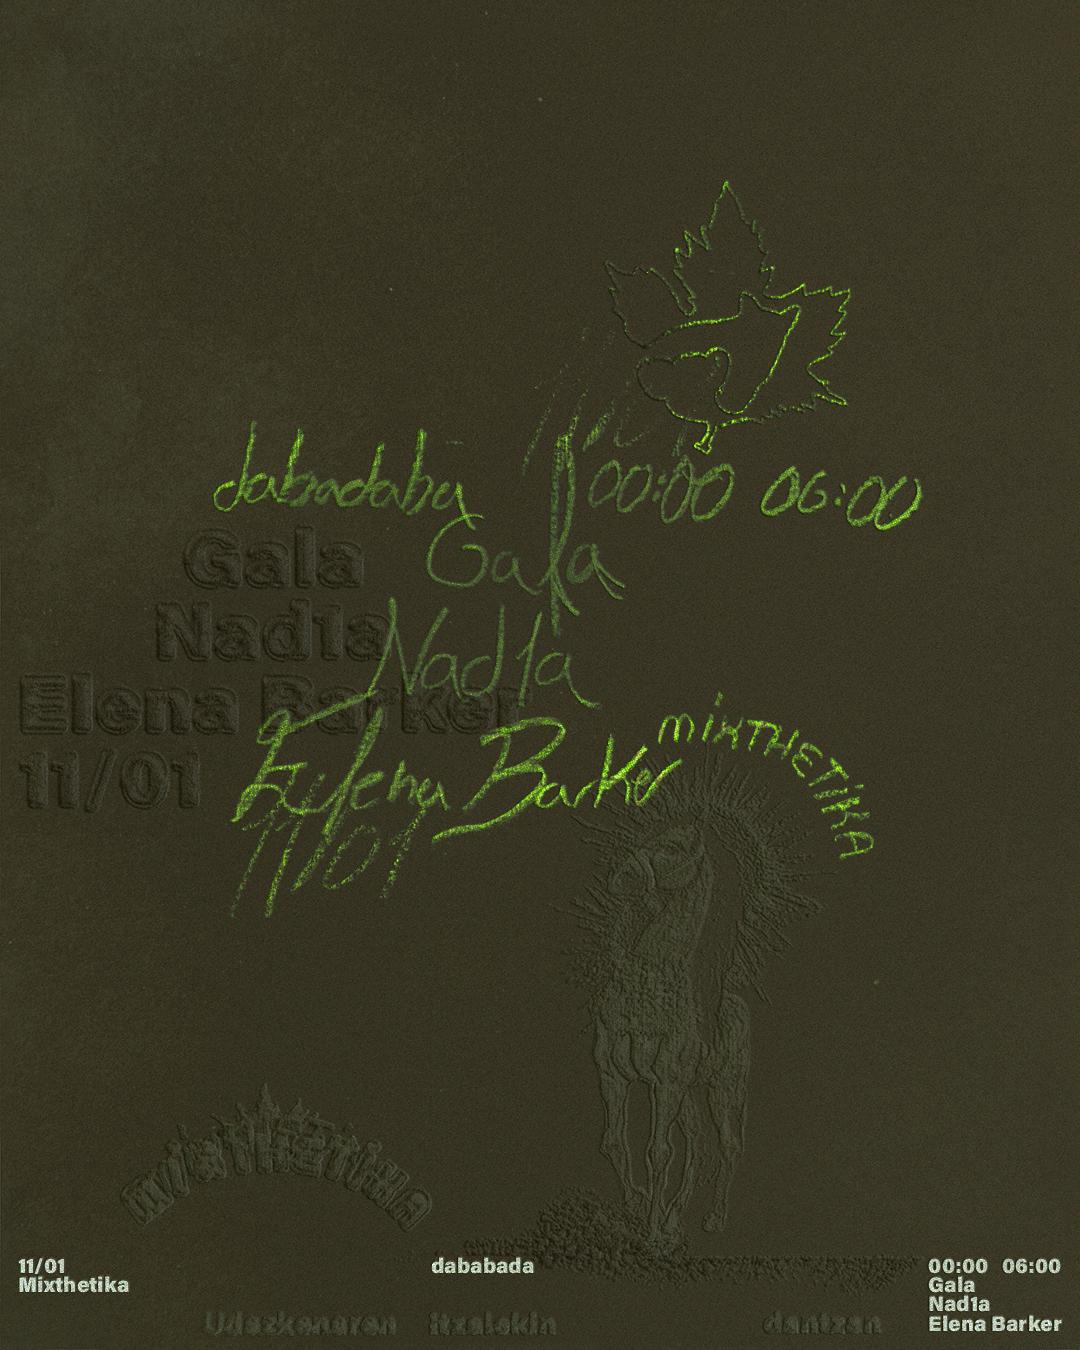 dabadaba
00:00 06:00
Gala
Nad1a
Elena Barker
11/01
Gala
Nad1a
Elena Barker
11/01
MiXTHETiKA
mixthetika
11/01
Mixthetika
dababada
00:00 06:00
Gala
Nad1a
Elena Barker
Udazkenaren itzalekin dantzan